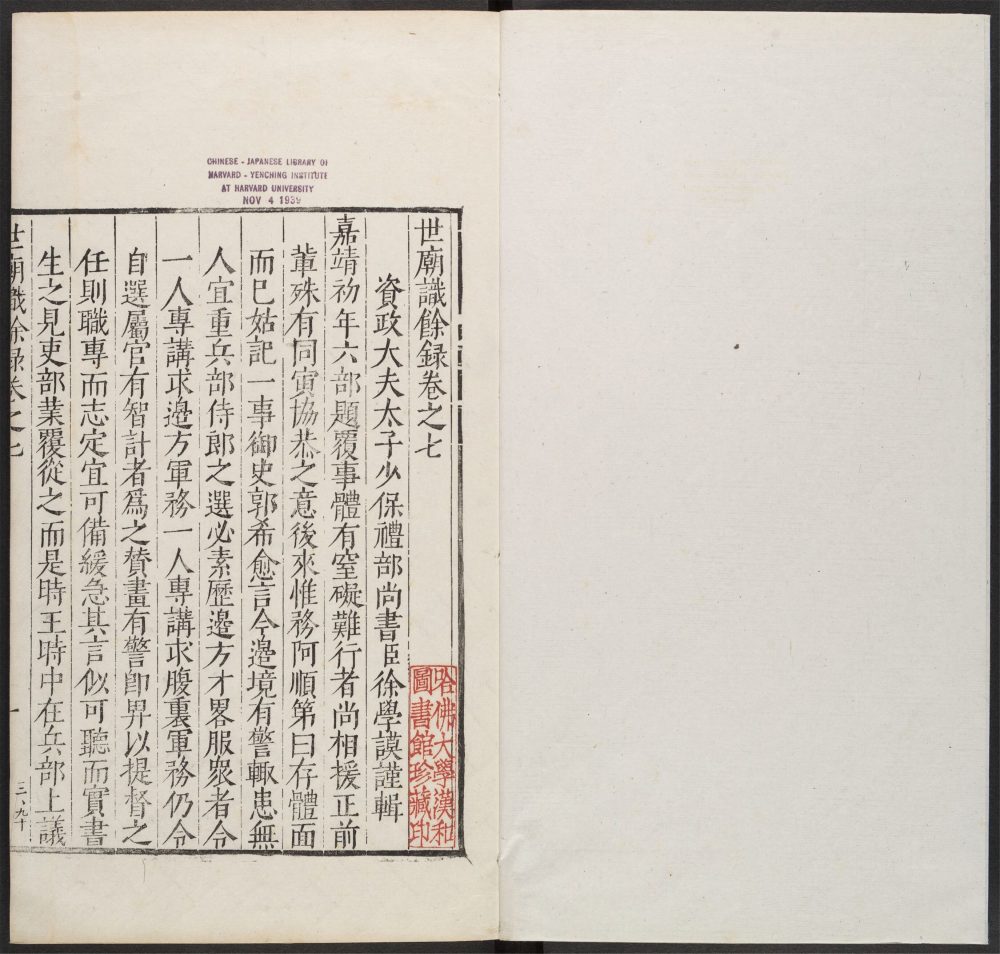 CHINESE - JAPANESE LIBRARY OF
HARVARD - YENCHING INSTITUTE
AT HARVARD UNIVERSITY
NOV 4 1939
世廟識餘録卷之七
資政大夫太子少保禮部尚書臣徐學謨謹輯
哈佛大學漢和
圖書館珍藏印
嘉靖初年六部題覆事體有窒礙難行者尚相援正前
軰殊有同寅協恭之意後來惟務阿順第曰存體面
而已姑記一事御史郭希愈言今邊境有警輙患無
人宜重兵部侍郎之選必素歷邊方才畧服衆者令
一人專講求邊方軍務一人專講求腹裏軍務仍令
自選屬官有智計者爲之賛畫有警卽畀以提督之
任則職專而志定宜可備緩急其言似可聽而實書
生之見吏部業覆從之而是時王時中在兵部上議
世廟識余録卷之七
一
三、九十